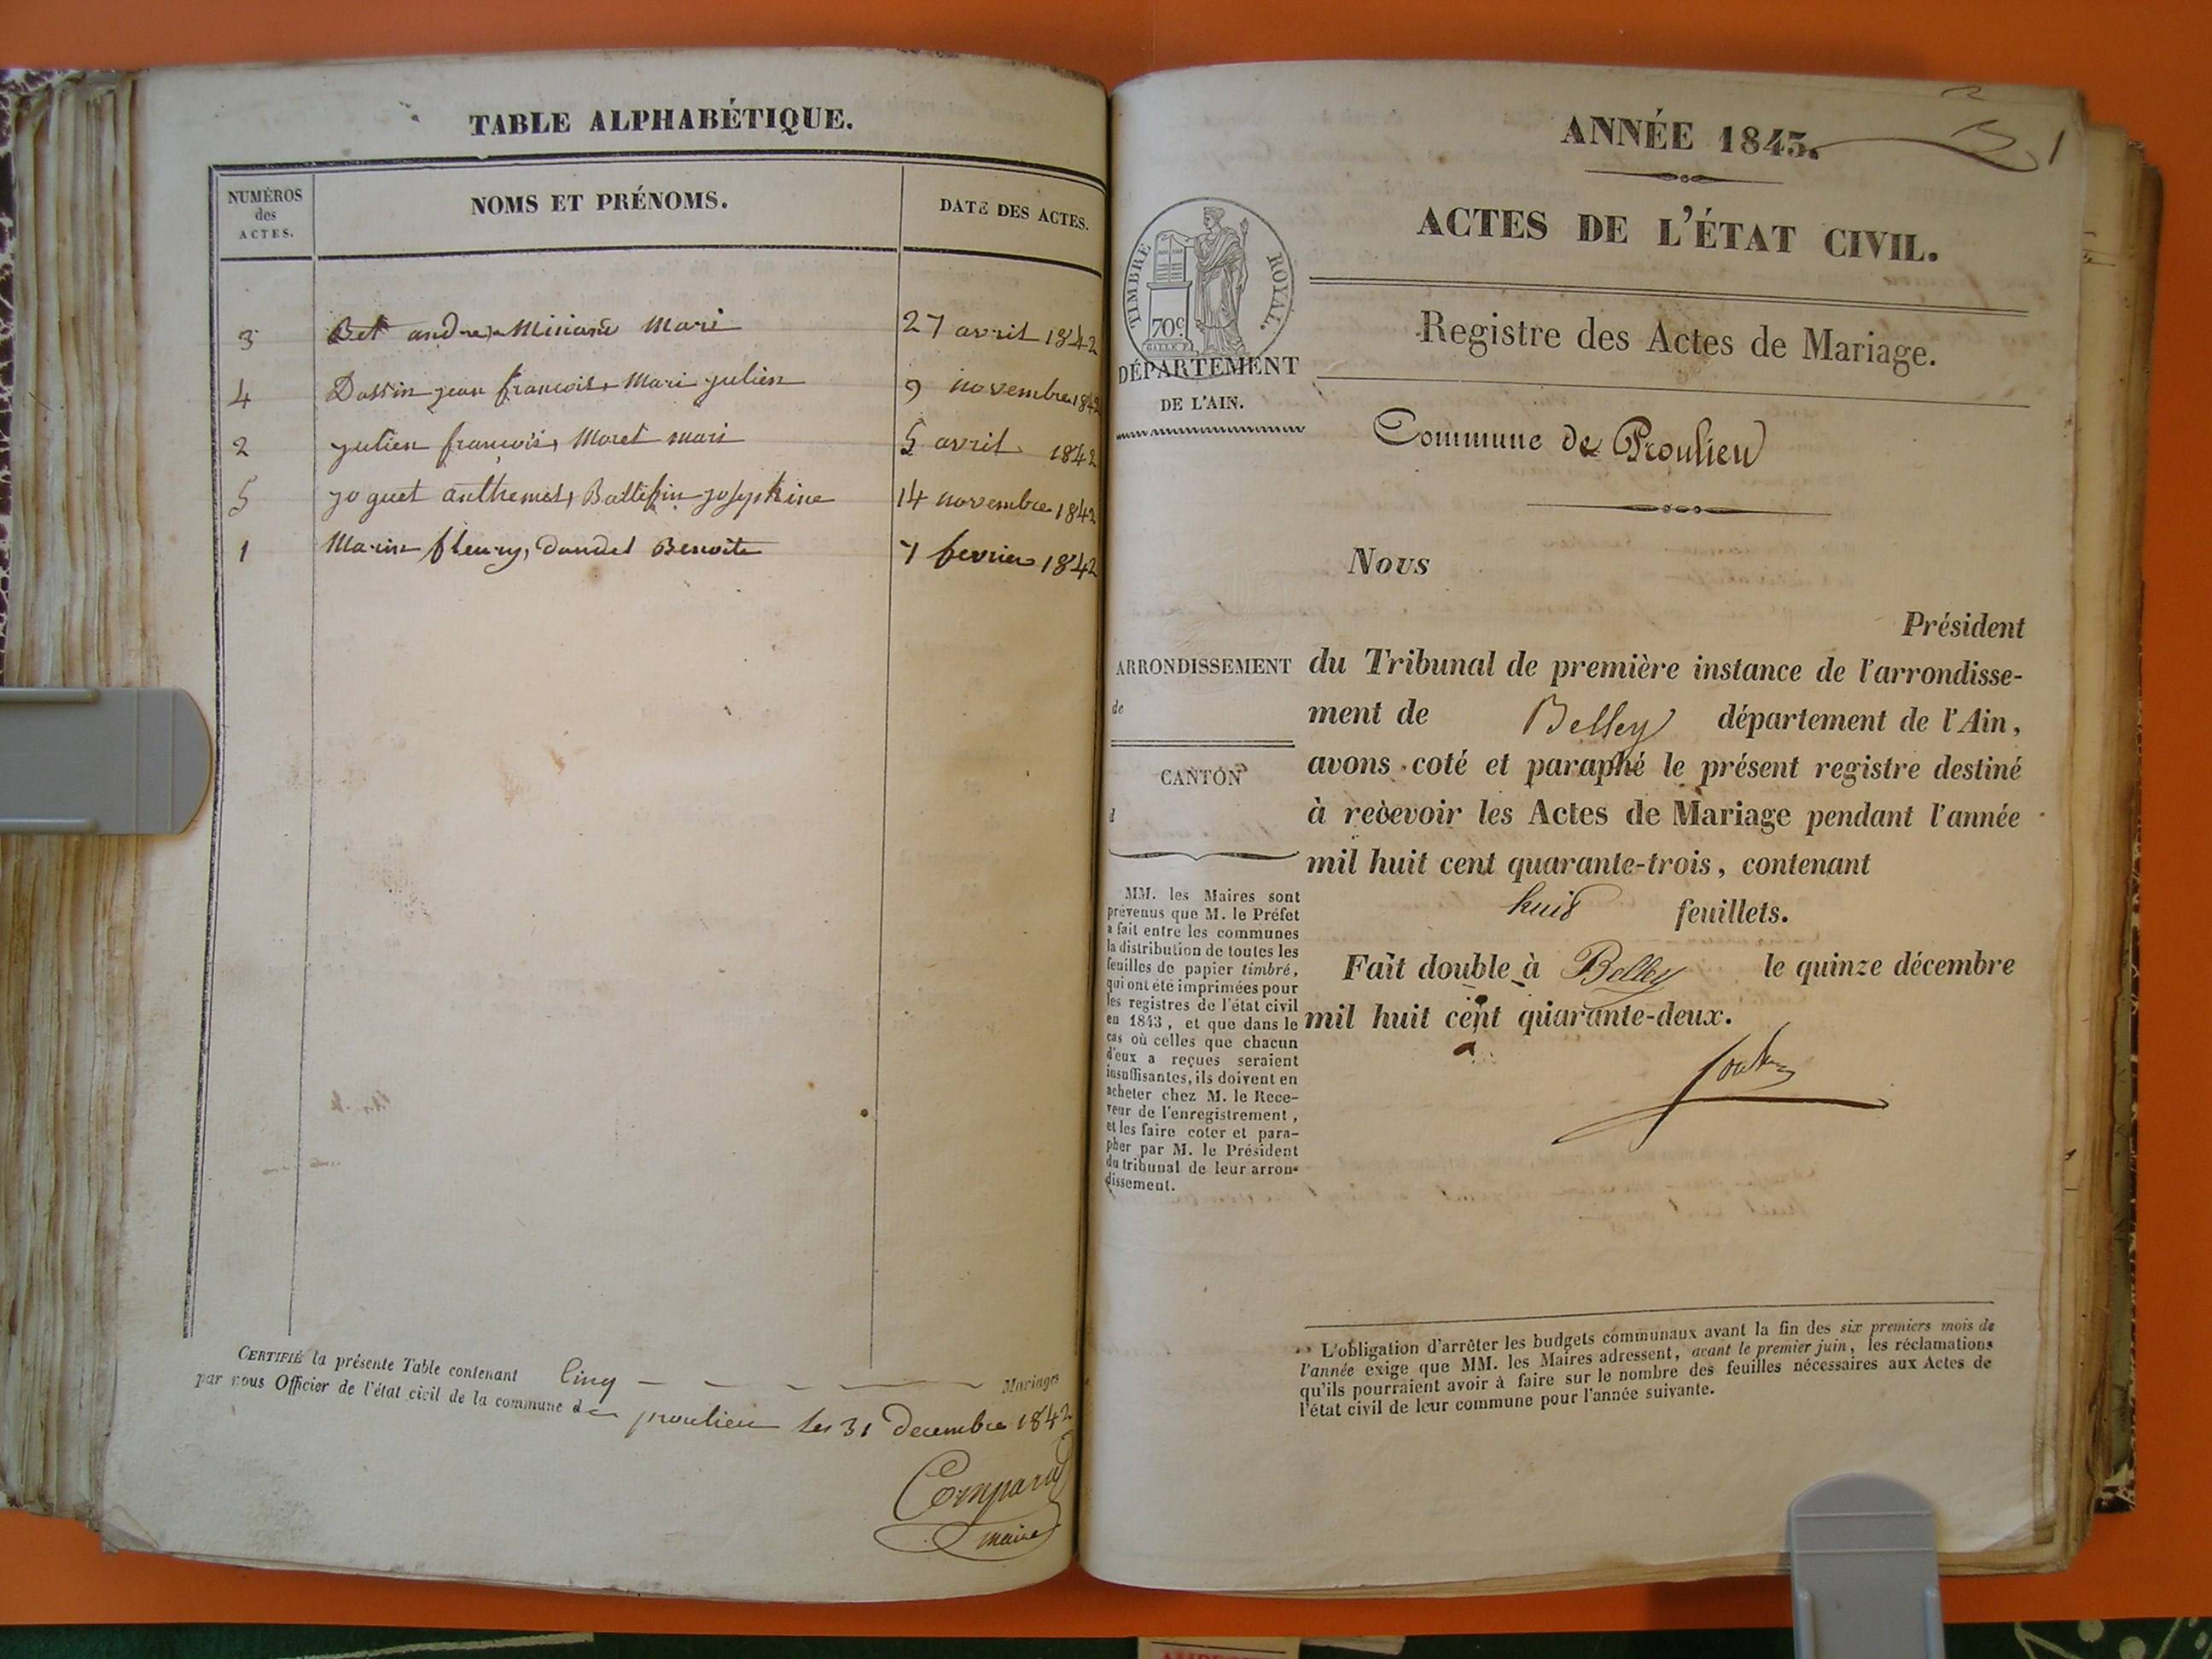 TABLE ALPHABÉTIQUE.
NUMÉROS
des
ACTES.
NOMS ET PRÉNOMS.
DATE DES ACTES.
3 Bet andre, Mari 27 avril 1842
4 Dassin jean francois, Mari julien 9 novembre 1842
2 julien francois, Moret mari 5 avril 1842
5 joguet anthemet, josephine 14 novembre 1842
1 Marin fleury, Benoite 7 fevrier 1842
CERTIFIÉ la présente Table contenant Cinq Mariages
par nous Officier de l'état civil de la commune de proulieu les 31 decembre 1842
maire
1
ANNÉE 1843.
ACTES DE L'ÉTAT CIVIL.
TIMBRE ROYAL.
70c.
DÉPARTEMENT
DE L'AIN.
Registre des Actes de Mariage.
Commune de Proulieu
Nous
Président
ARRONDISSEMENT
de
CANTON
d
du Tribunal de première instance de l'arrondisse-
ment de Belley département de l'Ain,
avons coté et paraphé le présent registre destiné
à recevoir les Actes de Mariage pendant l'année
mil huit cent quarante-trois, contenant
huit feuillets.
Fait double à Belley le quinze décembre
mil huit cent quarante-deux.
MM. les Maires sont
prévenus que M. le Préfet
a fait entre les communes
la distribution de toutes les
feuilles de papier timbré,
qui ont été imprimées pour
les registres de l'état civil
en 1843, et que dans le
cas où celles que chacun
d'eux a reçues seraient
insuffisantes, ils doivent en
acheter chez M. le Rece-
veur de l'enregistrement,
et les faire coter et para-
pher par M. le Président
du tribunal de leur arron-
dissement.
L'obligation d'arrêter les budgets communaux avant la fin des six premiers mois de
l'année exige que MM. les Maires adressent, avant le premier juin, les réclamations
qu'ils pourraient avoir à faire sur le nombre des feuilles nécessaires aux Actes de
l'état civil de leur commune pour l'année suivante.